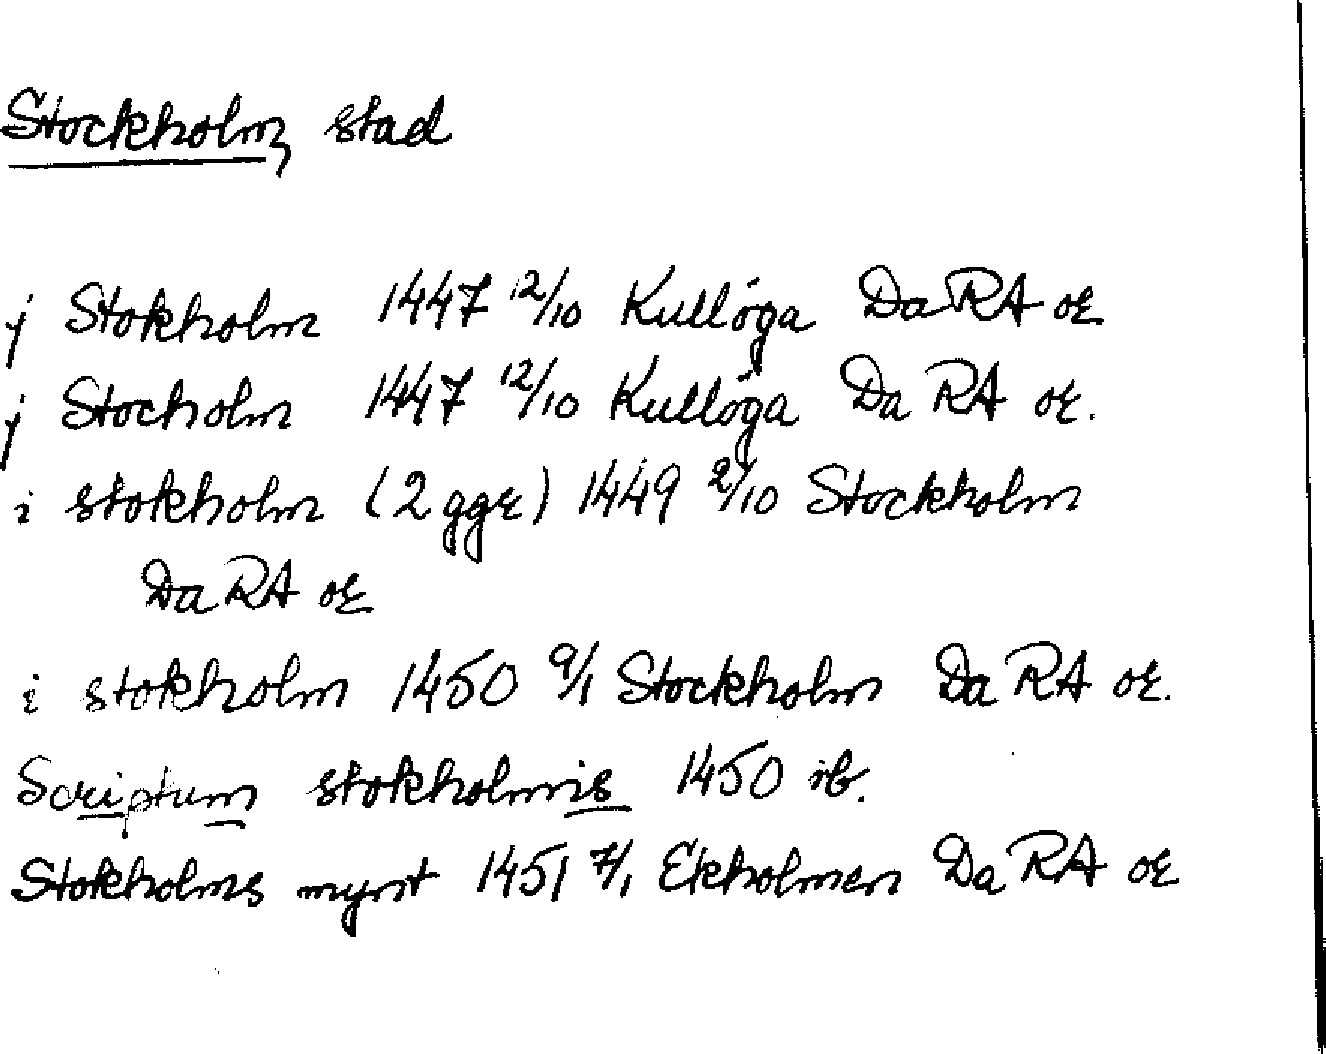 Stockholm, stad
j Stokholm 1447 12/10 Kullöga DaRA or
j Stocholm 1447 12/10 Kullöga Da RA or.
i stokholm (2 ggr) 1449 2/10 Stockholm
Da RA or
i stokholm 1450 9/1 Stockholm Da RA or.
Scriptum stokholmis 1450 ib.
Stokholms mynt 1451 7/1 Ekholmen Da RA or